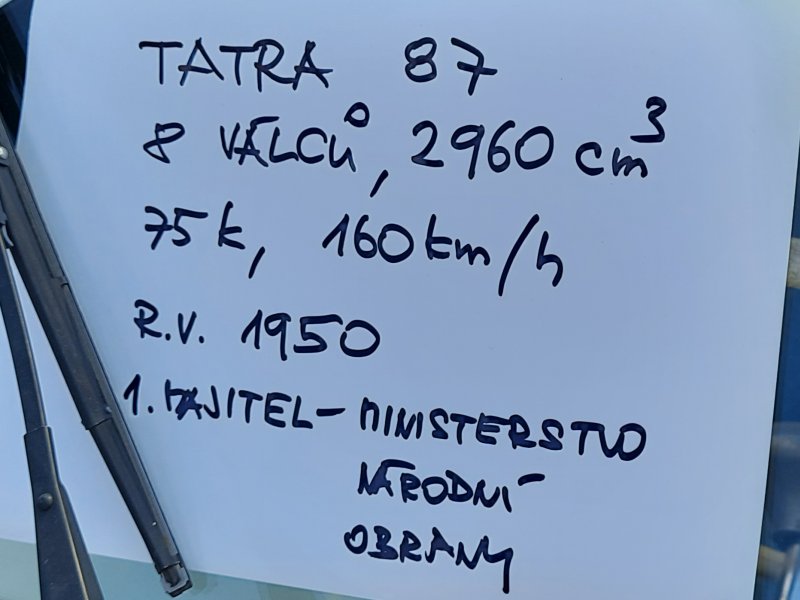 TATRA 87
8 VÁLCŮ, 2960 cm³
75 k, 160 km/h
R.V. 1950
1. MAJITEL – MINISTERSTVO
NÁRODNÍ
OBRANY